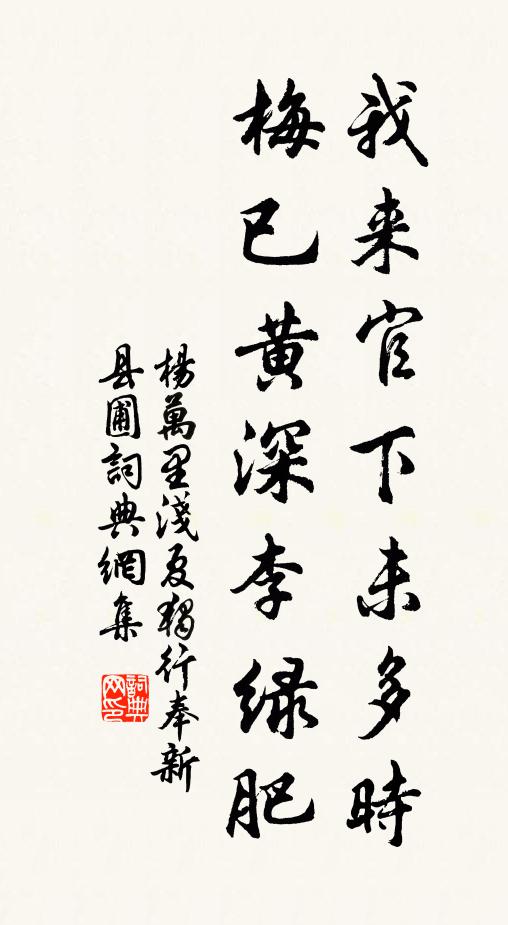 我来官下未多時
梅已黄深李緑肥
楊萬里淺夏獨行奉新
县圃詞典網集
詞典
网印